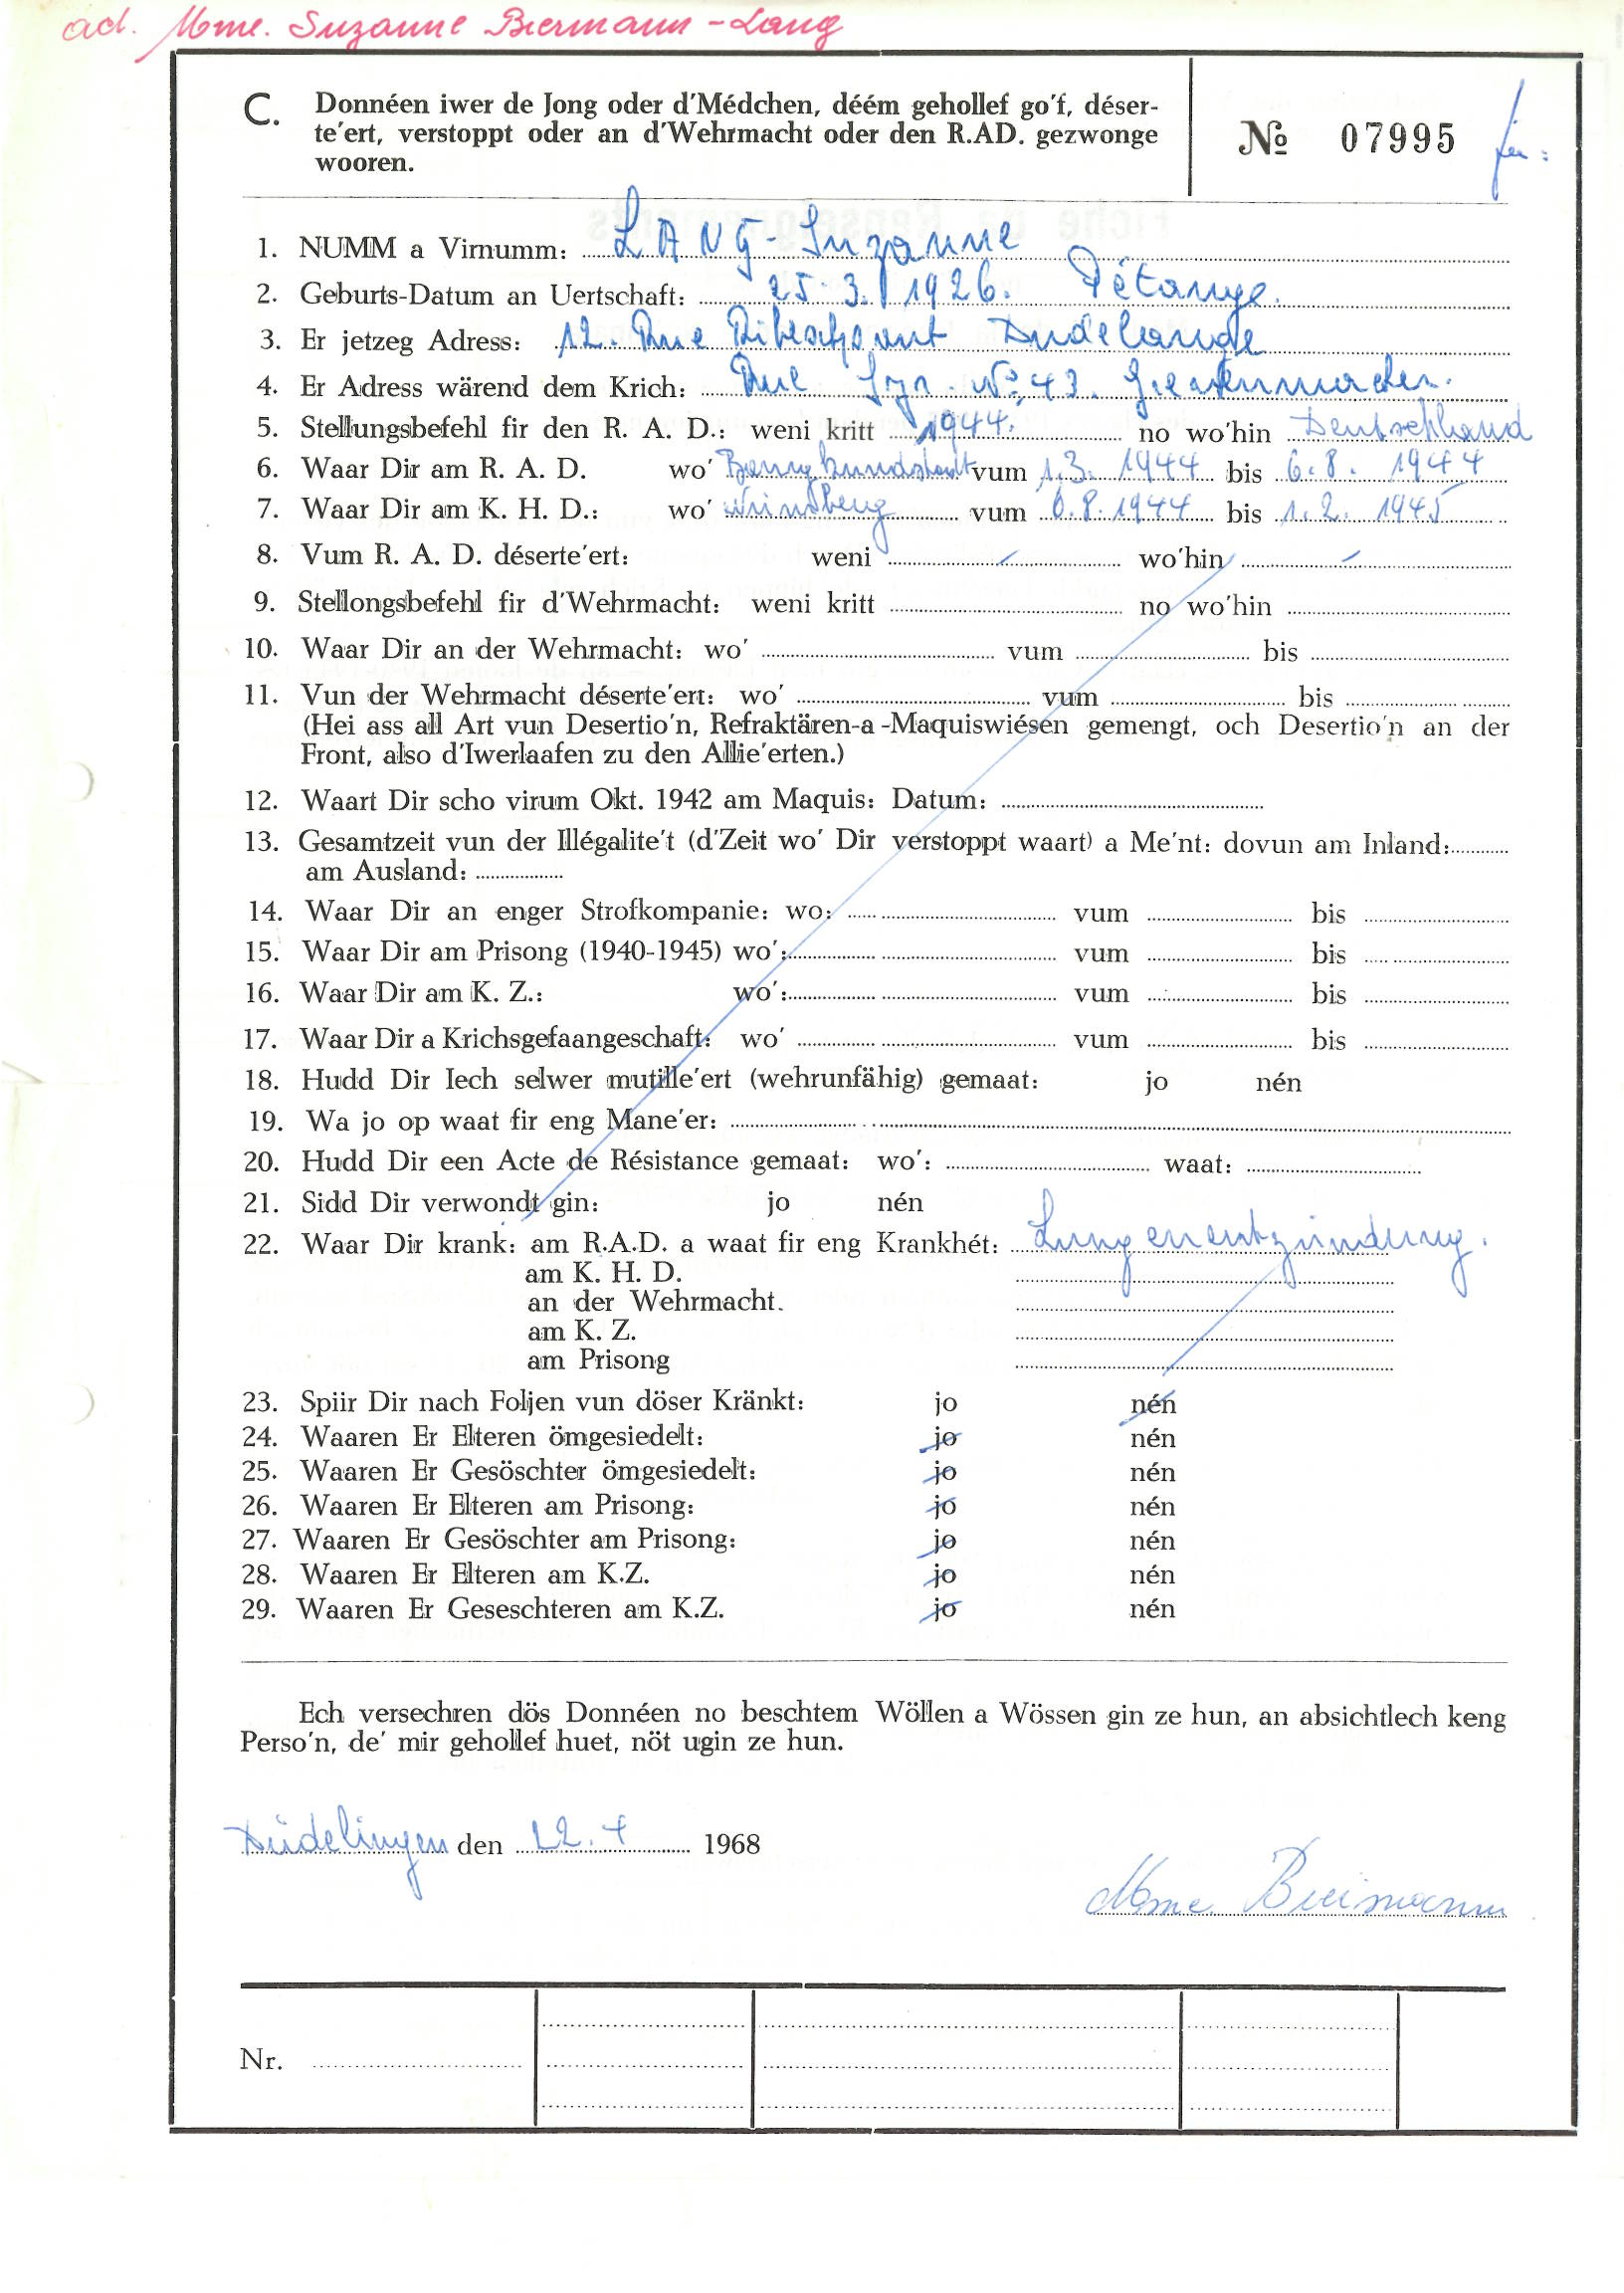 ad. Mme. Suzanne Biermann-Lang
C. Donnéen iwer de Jong oder d'Médchen, déém gehollef go'f, déser-
te'ert, verstoppt oder an d'Wehrmacht oder den R.AD. gezwonge
wooren.
№ 07995
1. NUMM a Virnumm: LANG-Suzanne
2. Geburts-Datum an Uertschaft: 25.3.1926. Pétange.
3. Er jetzeg Adress: 12. Rue Dudelange
4. Er Adress wärend dem Krich: Rue Syr. No. 43. Grevenmacher.
5. Stellungsbefehl fir den R. A. D.: weni kritt 1944. no wo'hin Deutschland
6. Waar Dir am R. A. D. wo' vum 1.3. 1944 bis 6.8. 1944
7. Waar Dir am K. H. D.: wo' Windberg vum 6.8.1944 bis 1.2. 1945
8. Vum R. A. D. déserte'ert: weni wo'hin
9. Stellongsbefehl fir d'Wehrmacht: weni kritt no wo'hin
10. Waar Dir an der Wehrmacht: wo' vum bis
11. Vun der Wehrmacht déserte'ert: wo' vum bis
(Hei ass all Art vun Desertio'n, Refraktären-a-Maquiswiésen gemengt, och Desertio'n an der
Front, also d'Iwerlaafen zu den Allie'erten.)
12. Waart Dir scho virum Okt. 1942 am Maquis: Datum:
13. Gesamtzeit vun der Illégalite't (d'Zeit wo' Dir verstoppt waart) a Me'nt: dovun am Inland:
am Ausland:
14. Waar Dir an enger Strofkompanie: wo: vum bis
15. Waar Dir am Prisong (1940-1945) wo': vum bis
16. Waar Dir am K. Z.: wo': vum bis
17. Waar Dir a Krichsgefaangeschaft: wo' vum bis
18. Hudd Dir Iech selwer mutille'ert (wehrunfähig) gemaat: jo nén
19. Wa jo op waat fir eng Mane'er:
20. Hudd Dir een Acte de Résistance gemaat: wo': waat:
21. Sidd Dir verwondt gin: jo nén
22. Waar Dir krank: am R.A.D. a waat fir eng Krankhét: Lungenentzündung.
am K. H. D.
an der Wehrmacht.
am K. Z.
am Prisong
23. Spiir Dir nach Foljen vun döser Kränkt: jo nén
24. Waaren Er Elteren ömgesiedelt: jo nén
25. Waaren Er Gesöschter ömgesiedelt: jo nén
26. Waaren Er Elteren am Prisong: jo nén
27. Waaren Er Gesöschter am Prisong: jo nén
28. Waaren Er Elteren am K.Z. jo nén
29. Waaren Er Geseschteren am K.Z. jo nén
Ech versechren dös Donnéen no beschtem Wöllen a Wössen gin ze hun, an absichtlech keng
Perso'n, de' mir gehollef huet, nöt ugin ze hun.
Düdelingen den 22.4 1968
Mme Biermann
Nr.